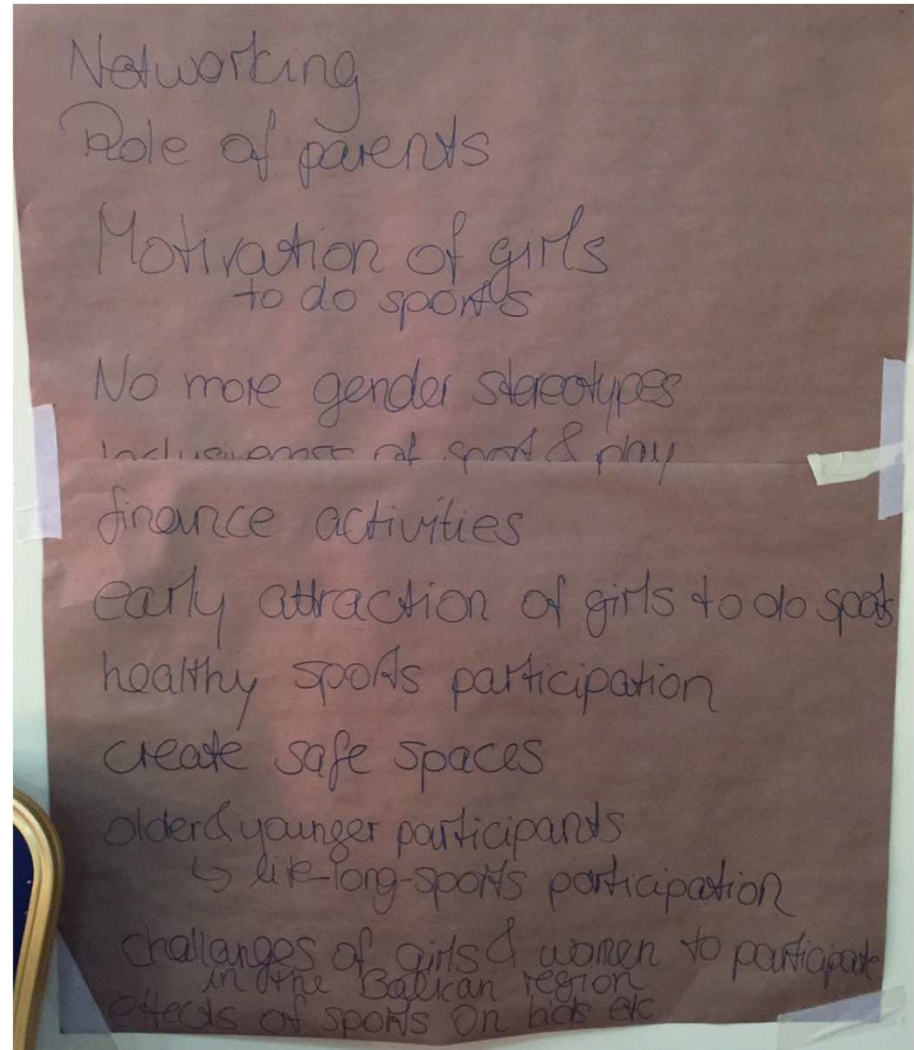 Networking
Role of parents
Motivation of girls
to do sports
No more gender stereotypes
Inclusiveness of sport & play
finance activities
early attraction of girls to do spots
healthy sports participation
create safe spaces
older & younger participants
↳ life-long-sports participation
challanges of girls & women to participate
in the Balkan region
effects of sports on kids etc.